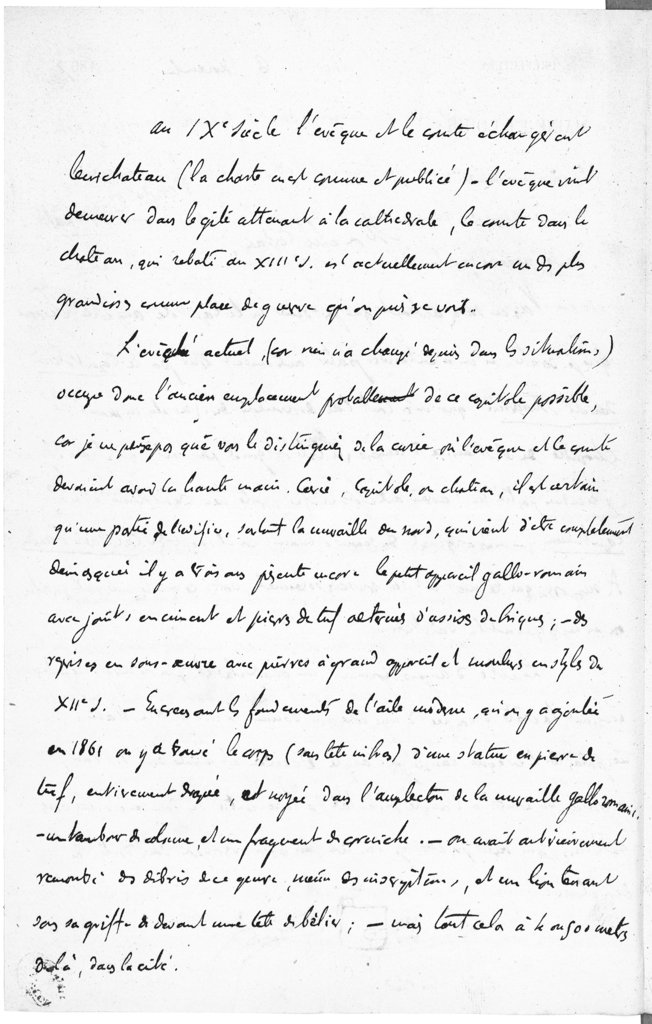 au IXe siècle l'évêque et le comte échangèrent
leur chateau (la charte en est connue et publiée) - l'évêque vint
demeurer dans le gîte attenant à la cathédrale, le comte dans le
chateau, qui rebati au XIIIe s. est actuellement encore un des plus
grandioses comme place de guerre qu'on puisse voir.
L'évêché actuel, (car rien n'a changé depuis dans les situations)
occupe donc l'ancien emplacement probable de ce capitole possible,
car je ne pense pas que vous le distinguiez de la curie où l'évêque et le comte
devaient avoir la haute main. Curie, Capitole, ou chateau, il est certain
qu'une partie de l'édifice, surtout la muraille du nord, qui vient d'être complètement
démasquée il y a trois ans présente encore le petit appareil gallo-romain
avec joints en ciment et pierres de tuf alternés d'assises de briques ; - des
reprises en sous-œuvre avec pierres à grand appareil et moulures en style du
XIIe s. - En creusant les fondements de l'aile moderne, qu'on y a ajoutée
en 1861 on y a trouvé le corps (sans tête ni bras) d'une statue en pierre de
tuf, entièrement drapée, et noyée dans l'emplecton de la muraille gallo romaine.
- un tambour de colonne, et un fragment de corniche. - on avait antérieurement
rencontré des débris de ce genre, même des inscriptions, et un lion tenant
sous sa griffe de devant une tête de bélier ; - mais tout cela à 4 ou 500 mètres
de là, dans la cité.